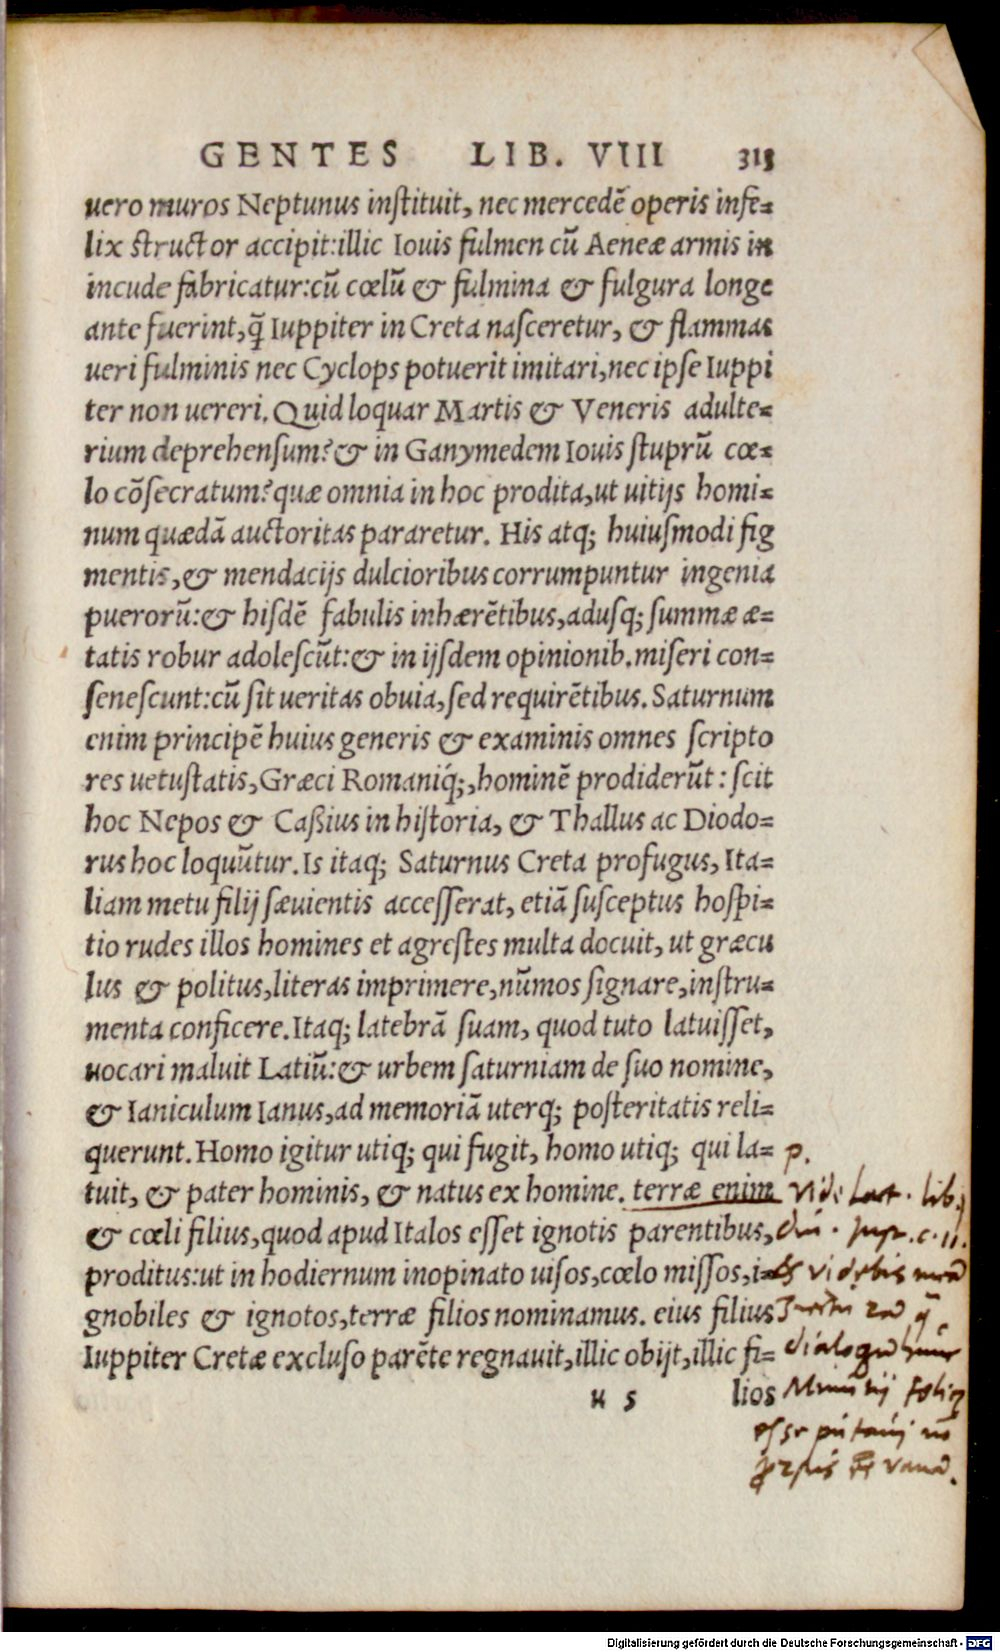 GENTES LIB. VIII 313
uero muros Neptunus instituit, nec mercedē operis infe=
lix structor accipit:illic Iouis fulmen cū Aeneæ armis in
incude fabricatur:cū cœlū & fulmina & fulgura longe
ante fuerint,q̃ Iuppiter in Creta nasceretur, & flammas
ueri fulminis nec Cyclops potuerit imitari,nec ipse Iuppi
ter non uereri. Quid loquar Martis & Veneris adulte=
rium deprehensum?& in Ganymedem Iouis stuprū cœ=
lo cōsecratum?quæ omnia in hoc prodita,ut uitijs homi=
num quædā auctoritas pararetur. His atq; huiusmodi fig
mentis,& mendacijs dulcioribus corrumpuntur ingenia
puerorū:& hisdē fabulis inhærētibus,adusq; summæ æ=
tatis robur adolescūt:& in ijsdem opinionib.miseri con=
senescunt:cū sit ueritas obuia,sed requirētibus. Saturnum
enim principē huius generis & examinis omnes scripto
res uetustatis,Græci Romaniq́;,hominē prodiderūt: scit
hoc Nepos & Caßius in historia, & Thallus ac Diodo=
rus hoc loquūtur. Is itaq; Saturnus Creta profugus, Ita=
liam metu filij sæuientis accesserat, etiā susceptus hospi=
tio rudes illos homines et agrestes multa docuit, ut græcu
lus & politus,literas imprimere,nūmos signare,instru=
menta conficere. Itaq; latebrā suam, quod tuto latuisset,
uocari maluit Latiū:& urbem saturniam de suo nomine,
& Ianiculum Ianus,ad memoriā uterq; posteritatis reli=
querunt. Homo igitur utiq; qui fugit, homo utiq; qui la=
tuit, & pater hominis, & natus ex homine. terræ enim
& cœli filius,quod apud Italos esset ignotis parentibus,
proditus:ut in hodiernum inopinato uisos,cœlo missos,i=
gnobiles & ignotos,terræ filios nominamus. eius filius
Iuppiter Cretæ excluso parēte regnauit,illic obijt,illic fi=
u 5 lios
p.
vide Lact. lib.
c. 11.
& videbis
esse